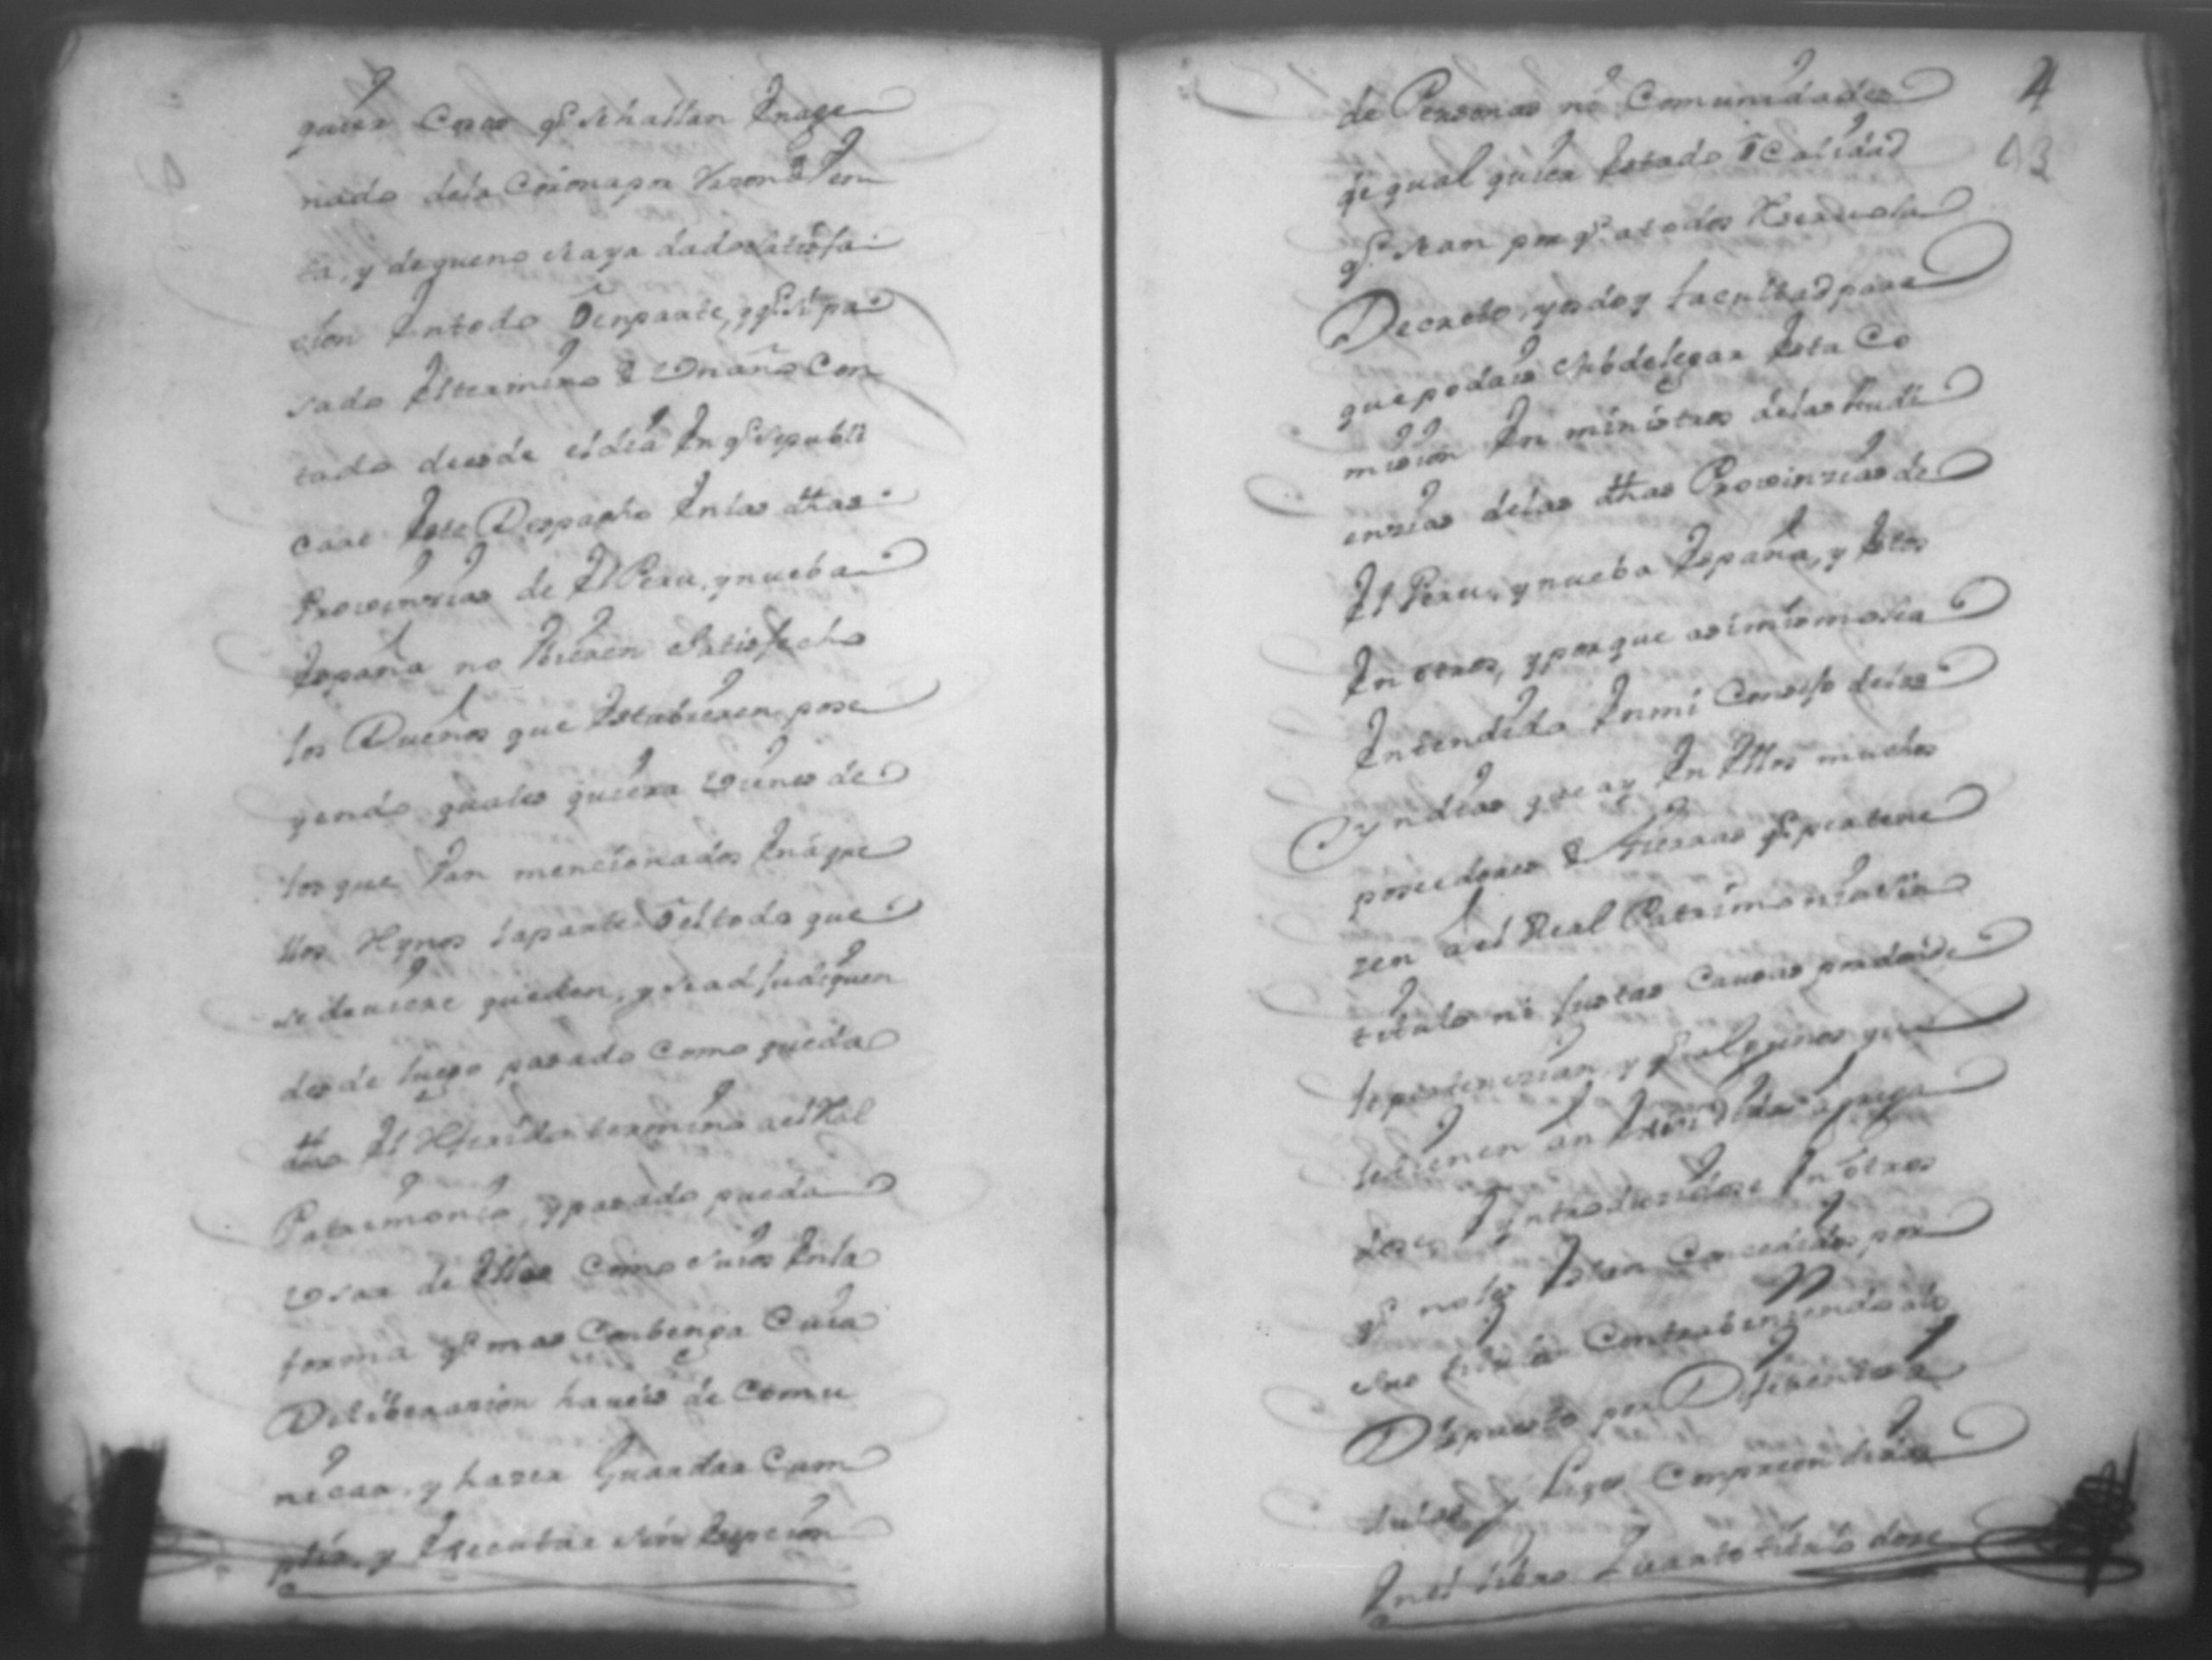 quier Cosas q.e se hallan Enage
nado dela Corona por Razon de Ven
ta, y de que no se aya dado satisfa
cion En todo o enparte, y q.e si pa
sado El termino de Un año Con
tado desde el dia En q.e se publi
care Este Despacho En las dhas
Provinzias de El Peru, y nueba
España no Vbieren Satisfecho
los Dueños que Estubieren pose
yendo quales quiera Vienes de
los que Van mencionados En aque
llos Rynos la parte o el todo que
se deuiere queden, y se adjudiquen
desde luego pasado Como queda
dho El Rferido termino a el Ral
Patrimonio, y pasado pueda
Vsar de Ellas Como suios En la
forma q.e mas Conbenga Cuia
Deliberasion haueis de Comu
nicar, y hazer Guardar Cum
plir, y Executar sin Expecion
de Personas ni Comunidades
de qual quier Estado o Calidad
q.e sean por q.e a todos
Decreto, y os doy facultad para
que podais subdelegar Esta Co
mision En ministros de las Audi
enzias de las dhas Provinzias de
El Peru, y nueba España, y Estos
En otros, y porque asimismo se a
Entendido En mi Consejo de las
Yndias que ay En Ellos muchos
poseedores de tierras q.e pertene
zen a el Real Patrimonio sin
titulo ni justas Causas por donde
le pertenezian, y q.e algunos que
le tienen an Exsedido
dose, Yntroduziedose En otros
q.e no les Estan Concedidos por
sus titulos Contrabeniendo a lo
Dispuesto por Diferentes
Leyes Comprehendidas
En el libro Quarto titulo dose
4